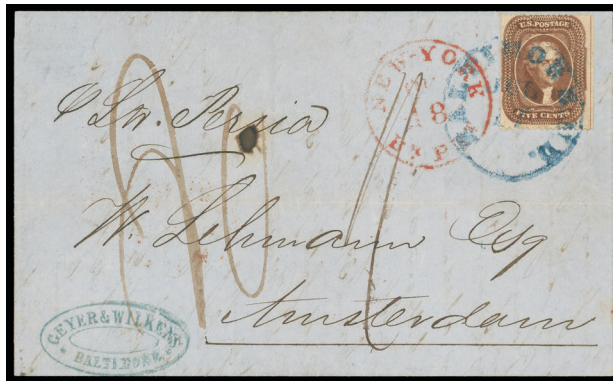 U.S. POSTAGE
FIVE CENTS
NEW-YORK
8
Str. Persia
W. Lehmann Esq
Amsterdam
GEYER & WILKENS
BALTIMORE